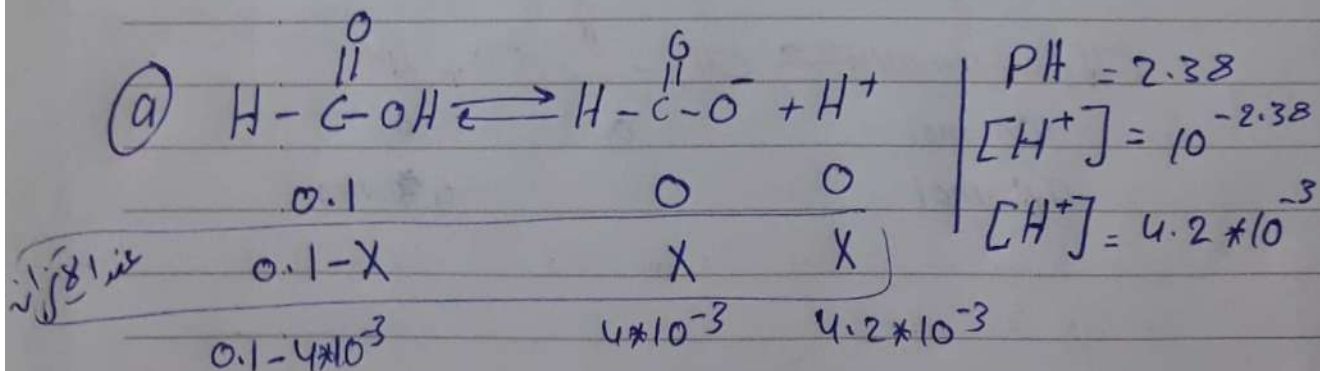 O O
ⓐ H - C - OH ⇌ H - C - O⁻ + H⁺
0.1 0 0
عند الاتزان 0.1-X X X
0.1-4*10⁻³ 4*10⁻³ 4.2*10⁻³
PH = 2.38
[H⁺] = 10⁻²·³⁸
[H⁺] = 4.2*10⁻³